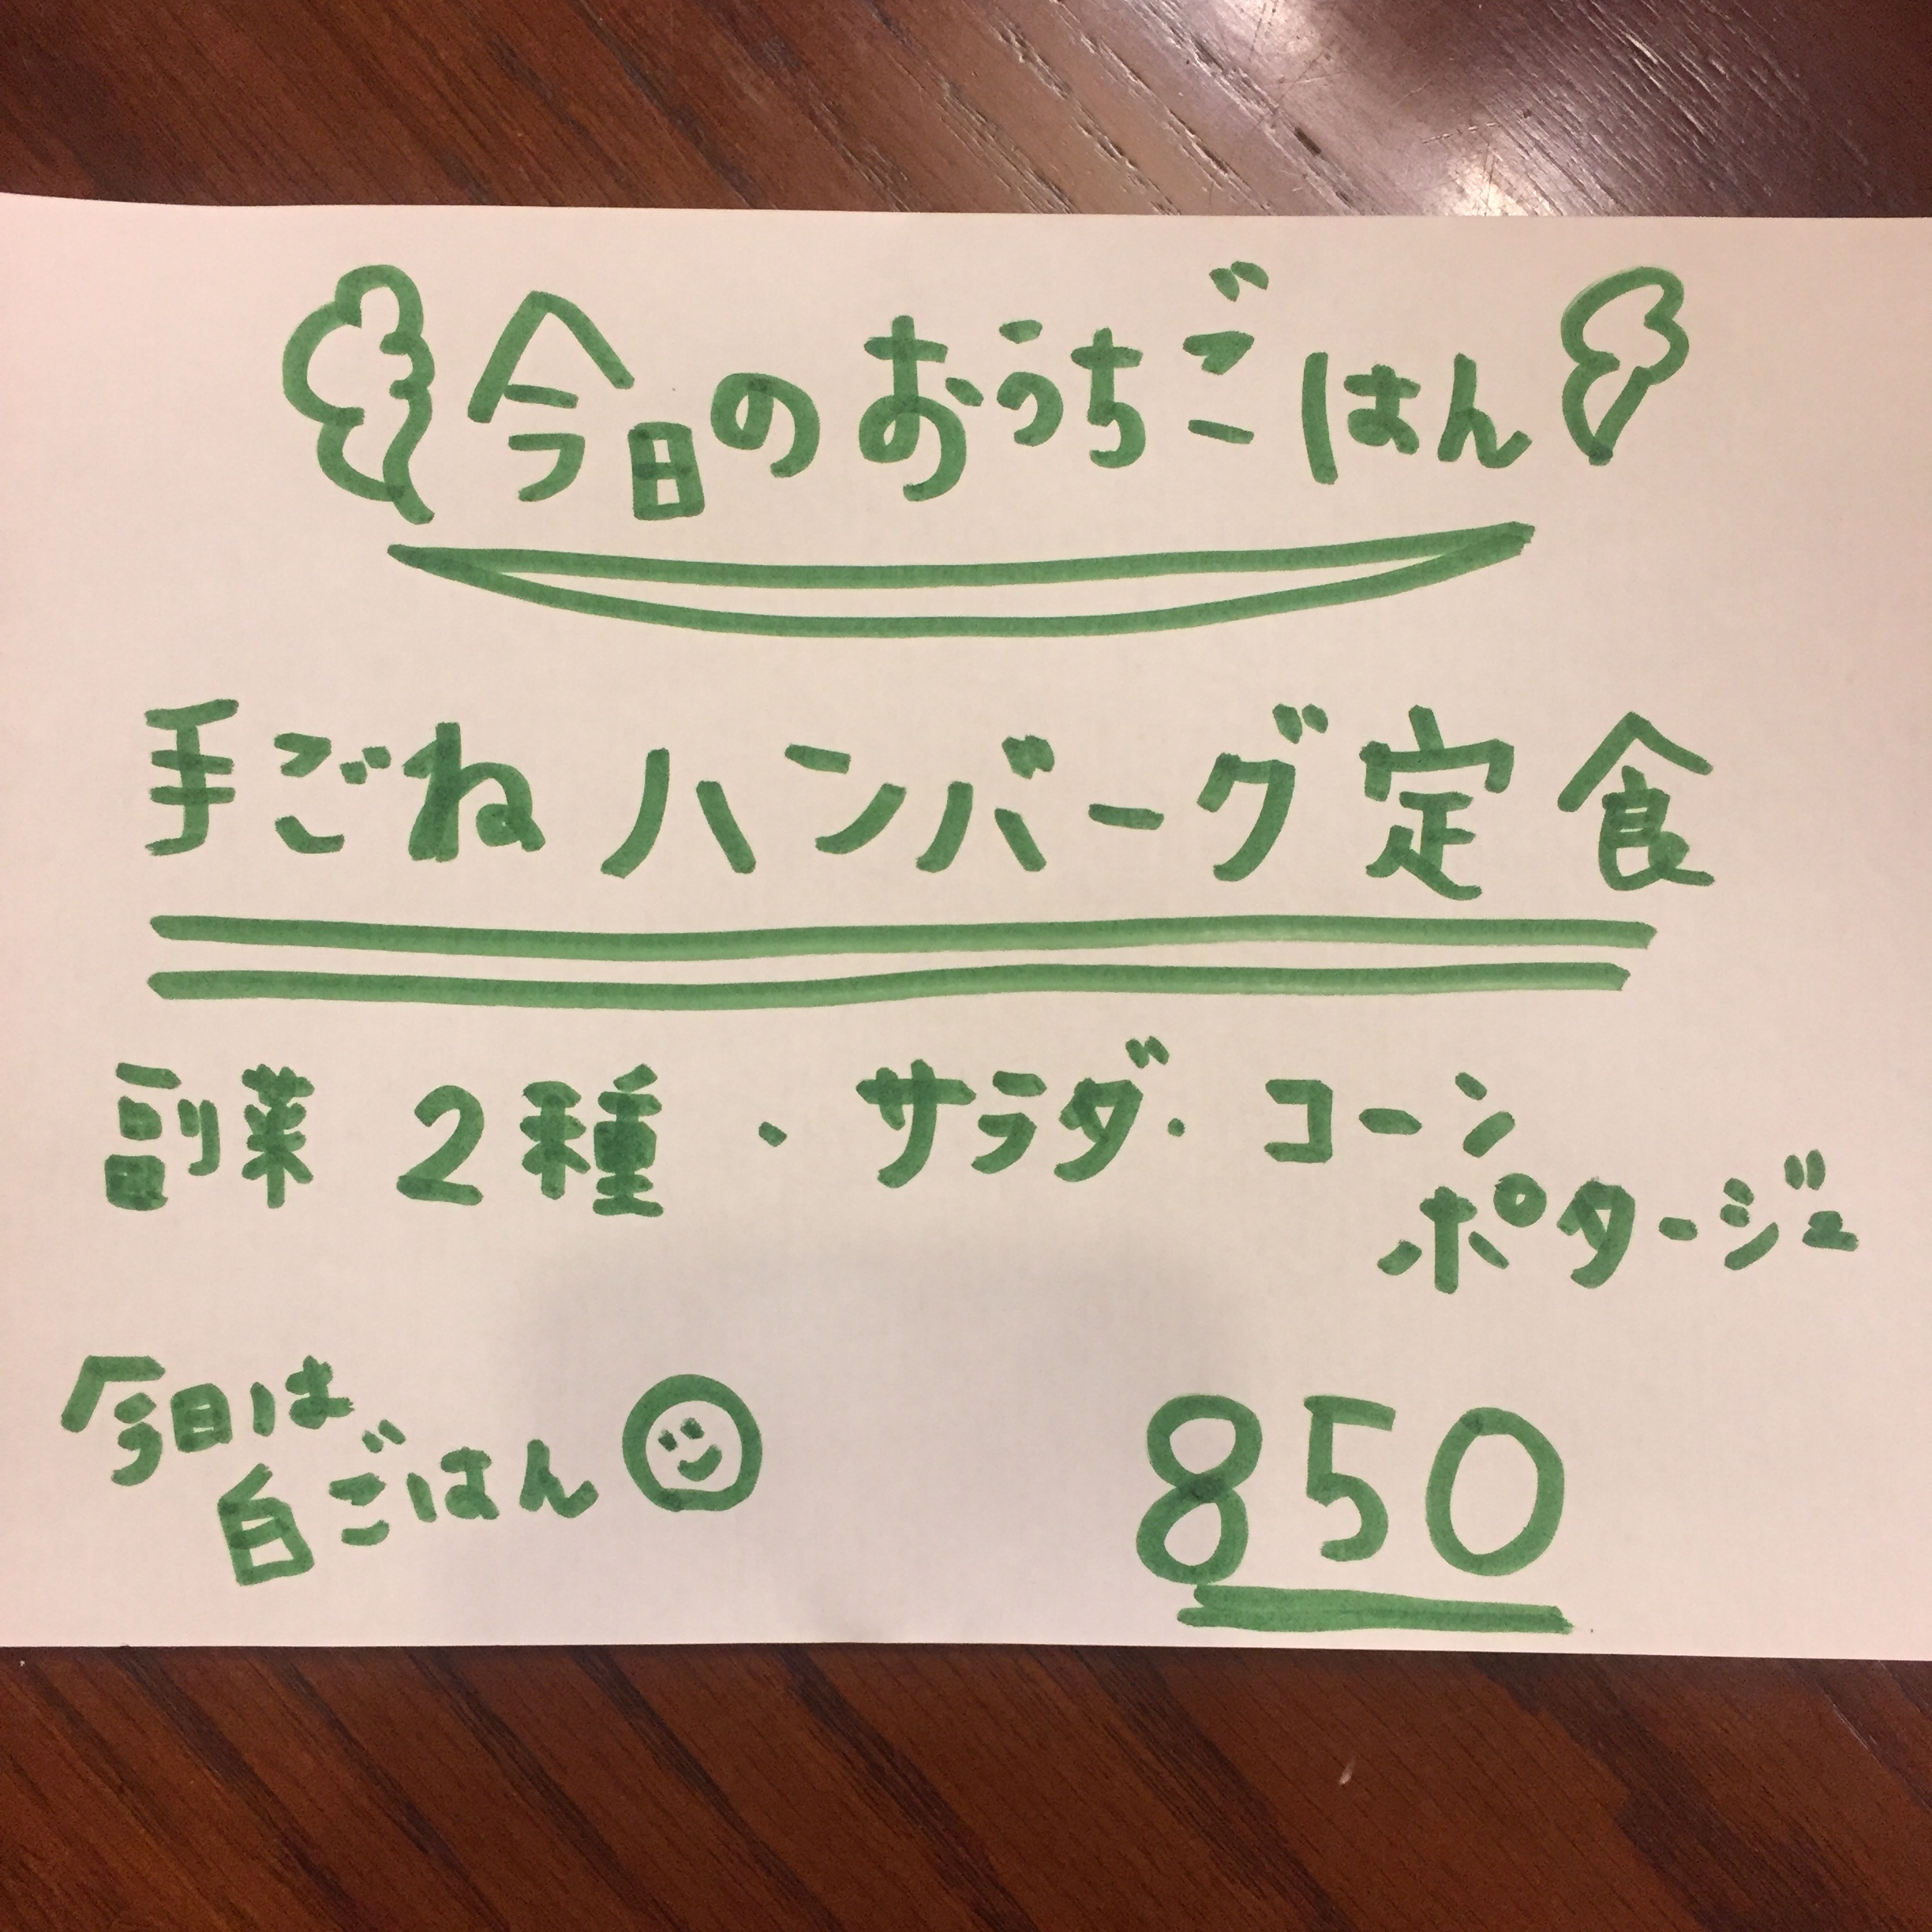 今日のおうちごはん
手ごねハンバーグ定食
副菜 2種・サラダ・コーン
ポタージュ
今日は
白ごはん
850